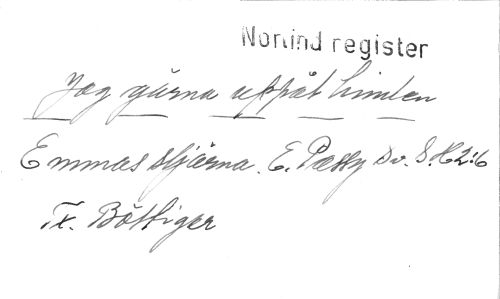 Norlind register
Jag gärna uppåt himlen
Emmas stjärna. E. Passy Sv. S. H2:6
Tx. Böttiger